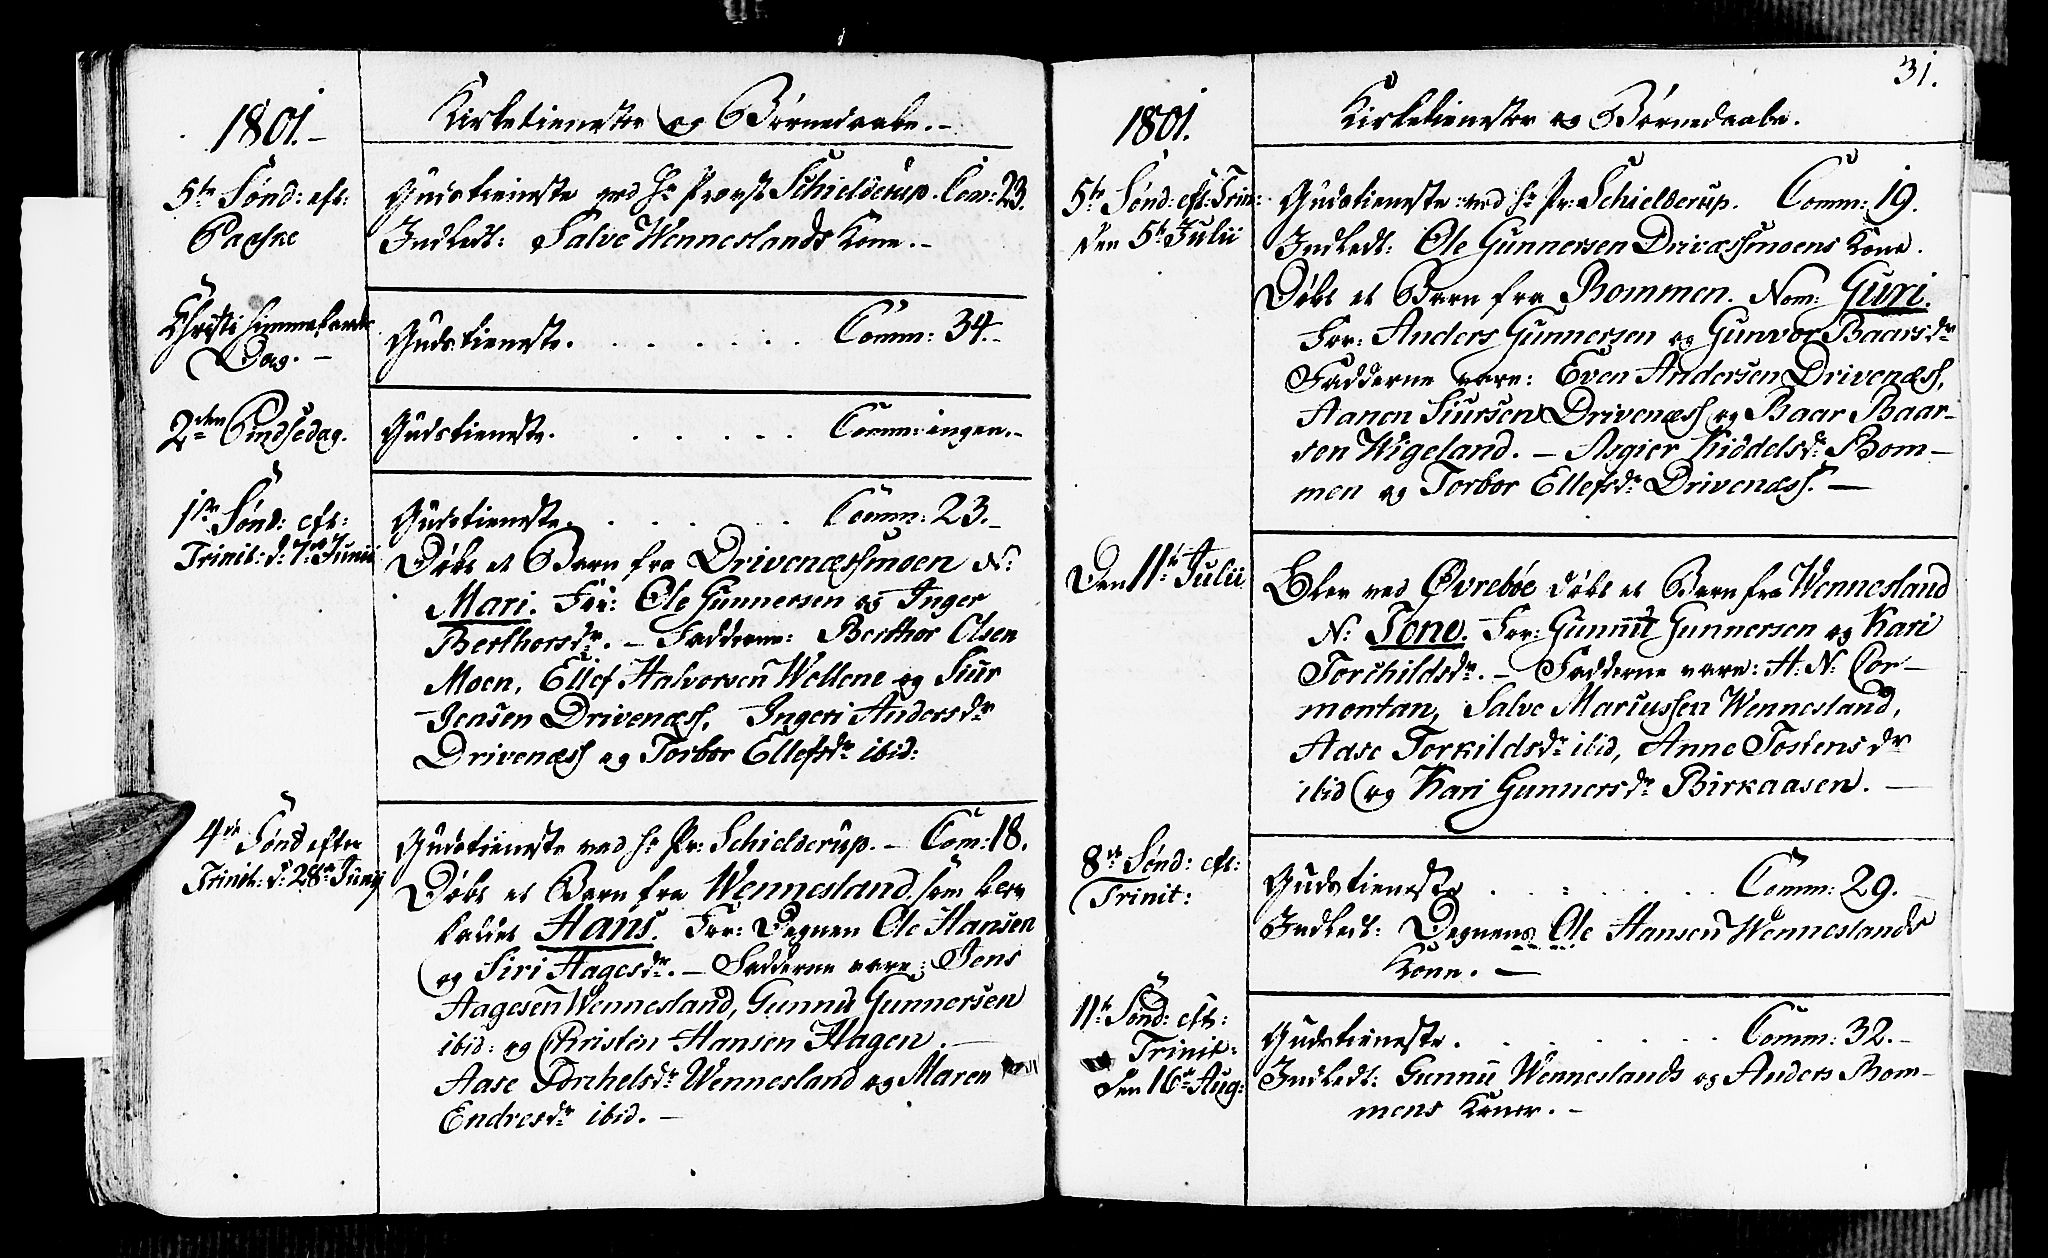 1801.-
Kirketienester og Börnedaabe.-
5te Sönd: eft:
Paaske
Gudstieneste ved Hr Provst Schielderup. Com: 23.
Indledt: Salve Wenneslands Kone.-
Christi Himmelfarts
Dag.-
Gudstieneste. . . . . . . Comm: 34.-
2den Pindsedag.
Gudstieneste. . . . . . Comm: ingen.-
1ste Sönd: eft:
Trinit: d: 7de Junii
Gudstieneste. . . . . . Comm: 23.-
Döbt et Barn fra Drivenæssmoen N:
Mari. For: Ole Gunnersen og Inger
Berthorsdr. - Fadderne: Berthor Olsen
Moen, Ellef Halvorsen Wollene og Siur
Jensen Drivenæss, Ingeri Andersdr
Drivenæss og Torbor Ellefsdr ibid:
4de Sönd efter
Trinit: d: 28de Junij
Gudstieneste ved Hr Pr: Schielderup.- Com: 18.
Döbt et Barn fra Wennesland som blev
kaldet Hans. For: Degnen Ole Hansen
og Siri Aagesdr. - Fadderne vare: Jens
Aagesen Wennesland, Gunnu Gunnersen
ibid: og Christen Hansen Hagen.-
Aase Torchelsdr Wennesland og Maren
Endresdr ibid.-
31.
1801.
Kirketienester og Börnedaabe.
5te Sönd: eft: Trin:
den 5te Julii
Gudstieneste ved Hr Pr: Schielderup. Comm: 19.
Indledt: Ole Gunnersen Drivæssmoens Kone.
Döbt et Barn fra Bommen. Nom: Guri.
For: Anders Gunnersen og Gunvor Baarsdr
Fadderne vare: Even Andersen Drivenæss,
Aanen Siursen Drivenæss og Baar Baar-
sen Wigeland. - Asgier Kiddelsdr Bom-
men og Torbor Ellefsdr Drivenæss. -
Den 11te Julii
Blev ved Øvrebøe döbt et Barn fra Wennesland
N: Tone. For: Gunnu Gunnersen og Kari
Torchildsdr. - Fadderne vare: H: N: Cor-
montan, Salve Mariussen Wennesland,
Aase Torkildsdr ibid, Anne Tostensdr
ibid og Kari Gunnersdr Birkaasen. -
8de Sönd: eft:
Trinit:
Gudstieneste . . . . . . Comm: 29.
Indledt: Degnens Ole Hansen Wenneslands
Kone. -
11te Sönd: eft:
Trinit:
den 16de Aug:
Gudstieneste. . . . . . Comm: 32.-
Indledt: Gunnu Wenneslands og Anders Bom-
mens Koner. -